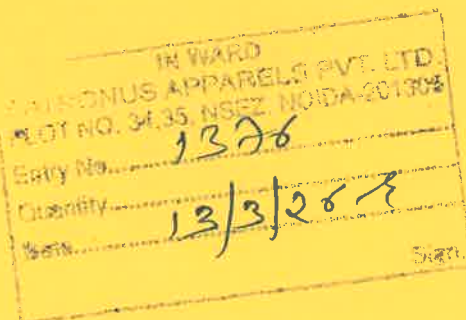 IN WARD
APPARELS PVT. LTD.
PLOT NO. 34,35, NSEZ, NOIDA-201305
Entry No. 1376
Quantity
Date 13/3/26
Sign.